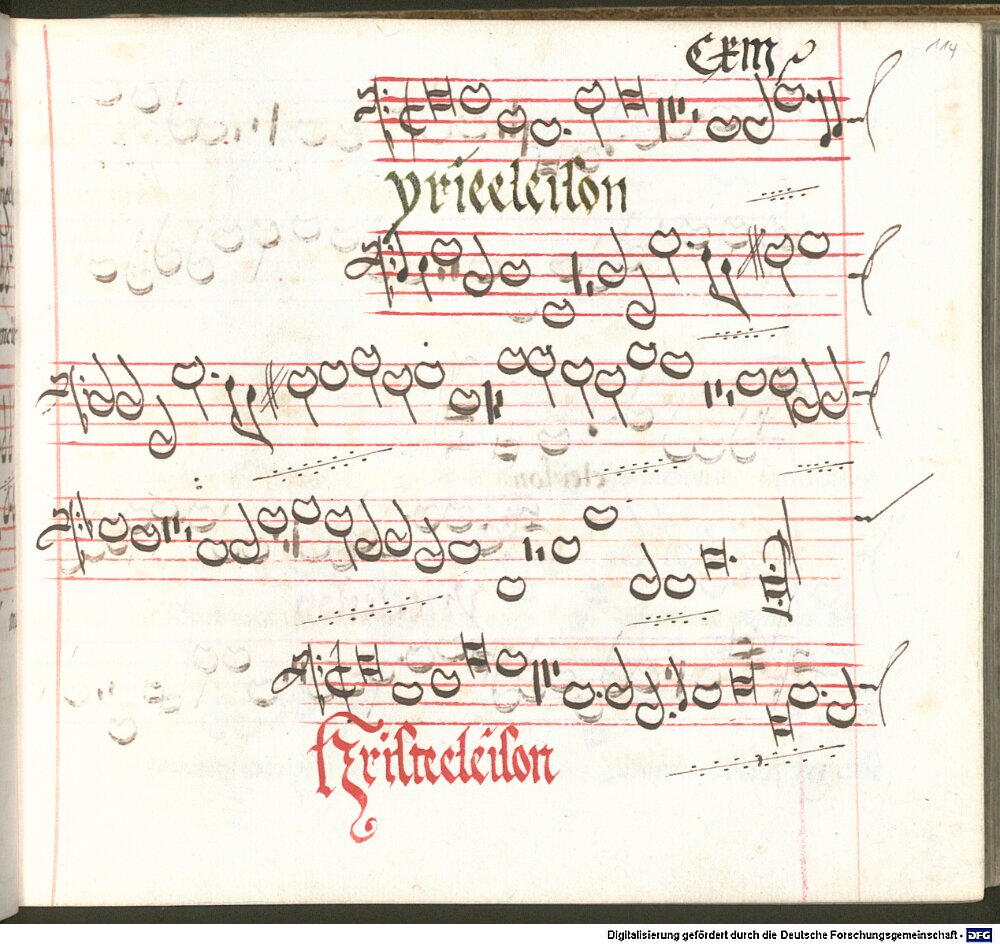 114
yrieeleison
Kristeeleison
Digitalisierung gefördert durch die Deutsche Forschungsgemeinschaft - DFG